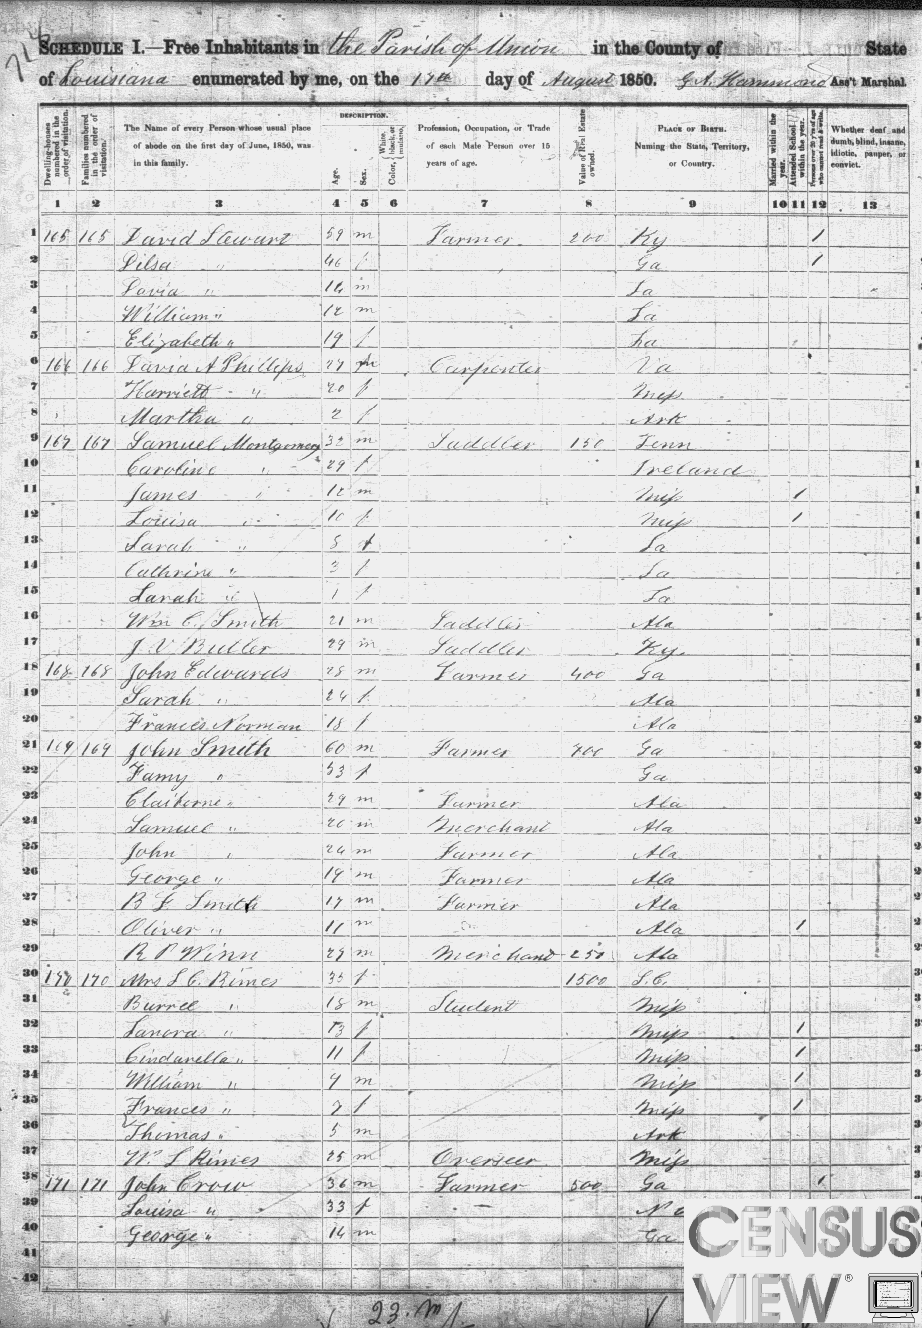 SCHEDULE I.—Free Inhabitants in the Parish of Union in the County of State
of Louisiana enumerated by me, on the 17th day of August 1850. G A. Hammond Ass't Marshal.
Dwelling-houses numbered in the order of visitation.
Families numbered in the order of visitation.
The Name of every Person whose usual place of abode on the first day of June, 1850, was in this family.
DESCRIPTION.
Age.
Sex.
Color, White, black, or mulatto.
Profession, Occupation, or Trade of each Male Person over 15 years of age.
Value of Real Estate owned.
PLACE OF BIRTH. Naming the State, Territory, or Country.
Married within the year.
Attended School within the year.
Persons over 20 y'rs of age who cannot read & write.
Whether deaf and dumb, blind, insane, idiotic, pauper, or convict.
1 2 3 4 5 6 7 8 9 10 11 12 13
1 165 165 David Stewart 59 m Farmer 200 Ky 1
2 Dilsa " 46 f Ga 1
3 David " 14 m La
4 William " 12 m La
5 Elizabeth " 19 f La
6 166 166 David A Phillips 27 m Carpenter Va
7 Harriett " 20 f Miss
8 Martha " 2 f Ark
9 167 167 Samuel Montgomery 32 m Saddler 150 Tenn
10 Caroline " 29 f Ireland
11 James " 12 m Miss 1
12 Louisa " 10 f Miss 1
13 Sarah " 5 f La
14 Cathrine " 3 f La
15 Sarah " 1 f La
16 Wm C. Smith 21 m Saddler Ala
17 J. V Butler 29 m Saddler Ky.
18 168 168 John Edwards 28 m Farmer 400 Ga
19 Sarah " 24 f Ala
20 Frances Norman 18 f Ala
21 169 169 John Smith 60 m Farmer 700 Ga
22 Famy " 53 f Ga
23 Claiborne " 29 m Farmer Ala
24 Samuel " 26 m Merchant Ala
25 John " 24 m Farmer Ala
26 George " 19 m Farmer Ala
27 B F Smith 17 m Farmer Ala
28 Oliver " 11 m Ala 1
29 R P Winn 29 m Merchant 250 Ala
30 170 170 Mrs S C. Rimes 35 f 1500 S.C.
31 Burrel " 18 m Student Miss
32 Lanora " 13 f Miss 1
33 Cindarella " 11 f Miss 1
34 William " 9 m Miss 1
35 Frances " 7 f Miss 1
36 Thomas " 5 m Ark
37 W. S Rimes 25 m Overseer Miss
38 171 171 John Crow 36 m Farmer 500 Ga 1
39 Louisa " 33 f N
40 George " 14 m Ga
41
42
23. m
CENSUS
VIEW ®